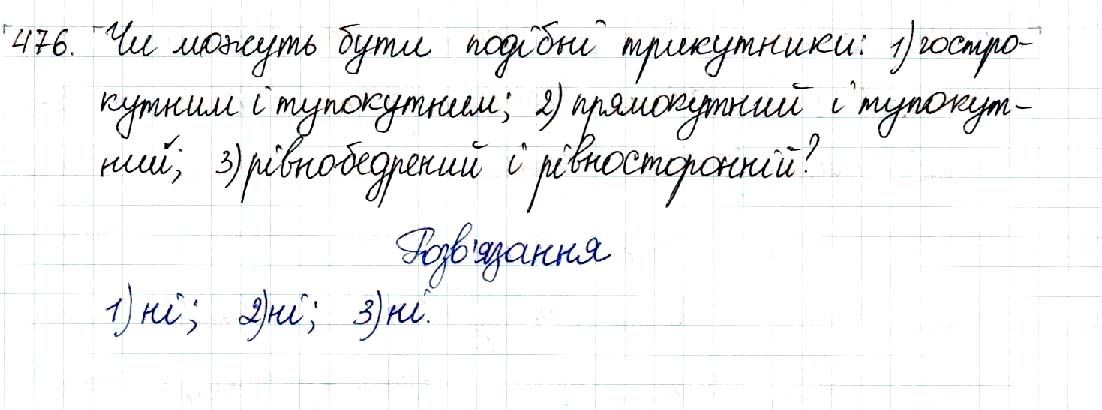 476. Чи можуть бути подібні трикутники: 1) гостро-
кутним і тупокутним; 2) прямокутний і тупокут-
ний; 3) рівнобедрений і рівносторонній?
Розв'язання
1) ні; 2) ні; 3) ні.